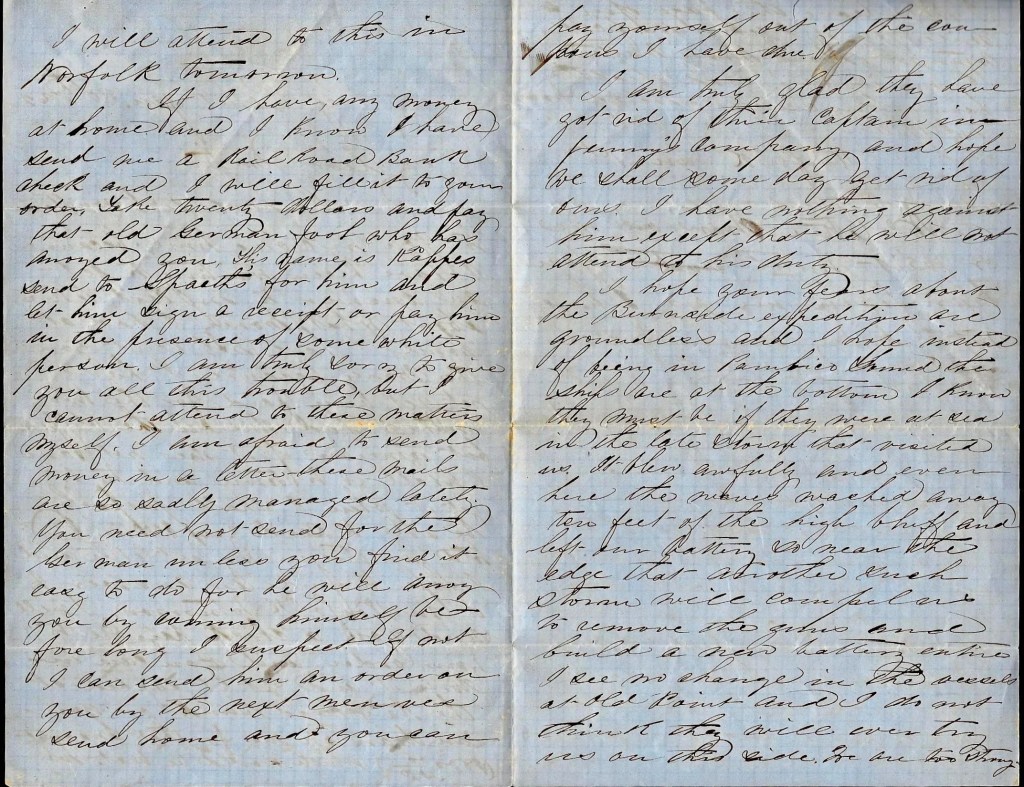 I will attend to this in
Norfolk tomorrow.
If I have any money
at home and I know I have
send me a Rail Road Bank
check and I will fill it to your
order. Take twenty dollars and pay
that old German fool who has
anoyed you. His name is Kappes
send to Spaeths for him and
let him sign a receipt, or pay him
in the presence of some white
person. I am truly sorry to give
you all this trouble, but I
cannot attend to these matters
myself. I am afraid to send
money in a letter these mails
are so sadly managed lately.
You need not send for the
German unless you find it
easy to do for he will anoy
you by coming himself be-
fore long I suspect. If not
I can send him an order on
you by the next men we
send home and you can
pay yourself out of the cou-
pons I have due.
I am truly glad they have
got rid of their Captain in
company, and hope
we shall some day get rid of
ours. I have nothing against
him except that he will not
attend to his duty.
I hope your fears about
the Burnside expedition are
groundless and I hope instead
of being in Pamlico Sound the
ships are at the bottom. I know
they must be if they were at sea
in the late storm that visited
us. It blew awfully and even
here the waves washed away
ten feet of the high bluff and
left our battery so near the
edge that another such
storm will compel us
to remove the guns and
build a new battery entire
I see no change in the vessels
at Old Point and I do not
think they will ever try
us on this side. We are too strong